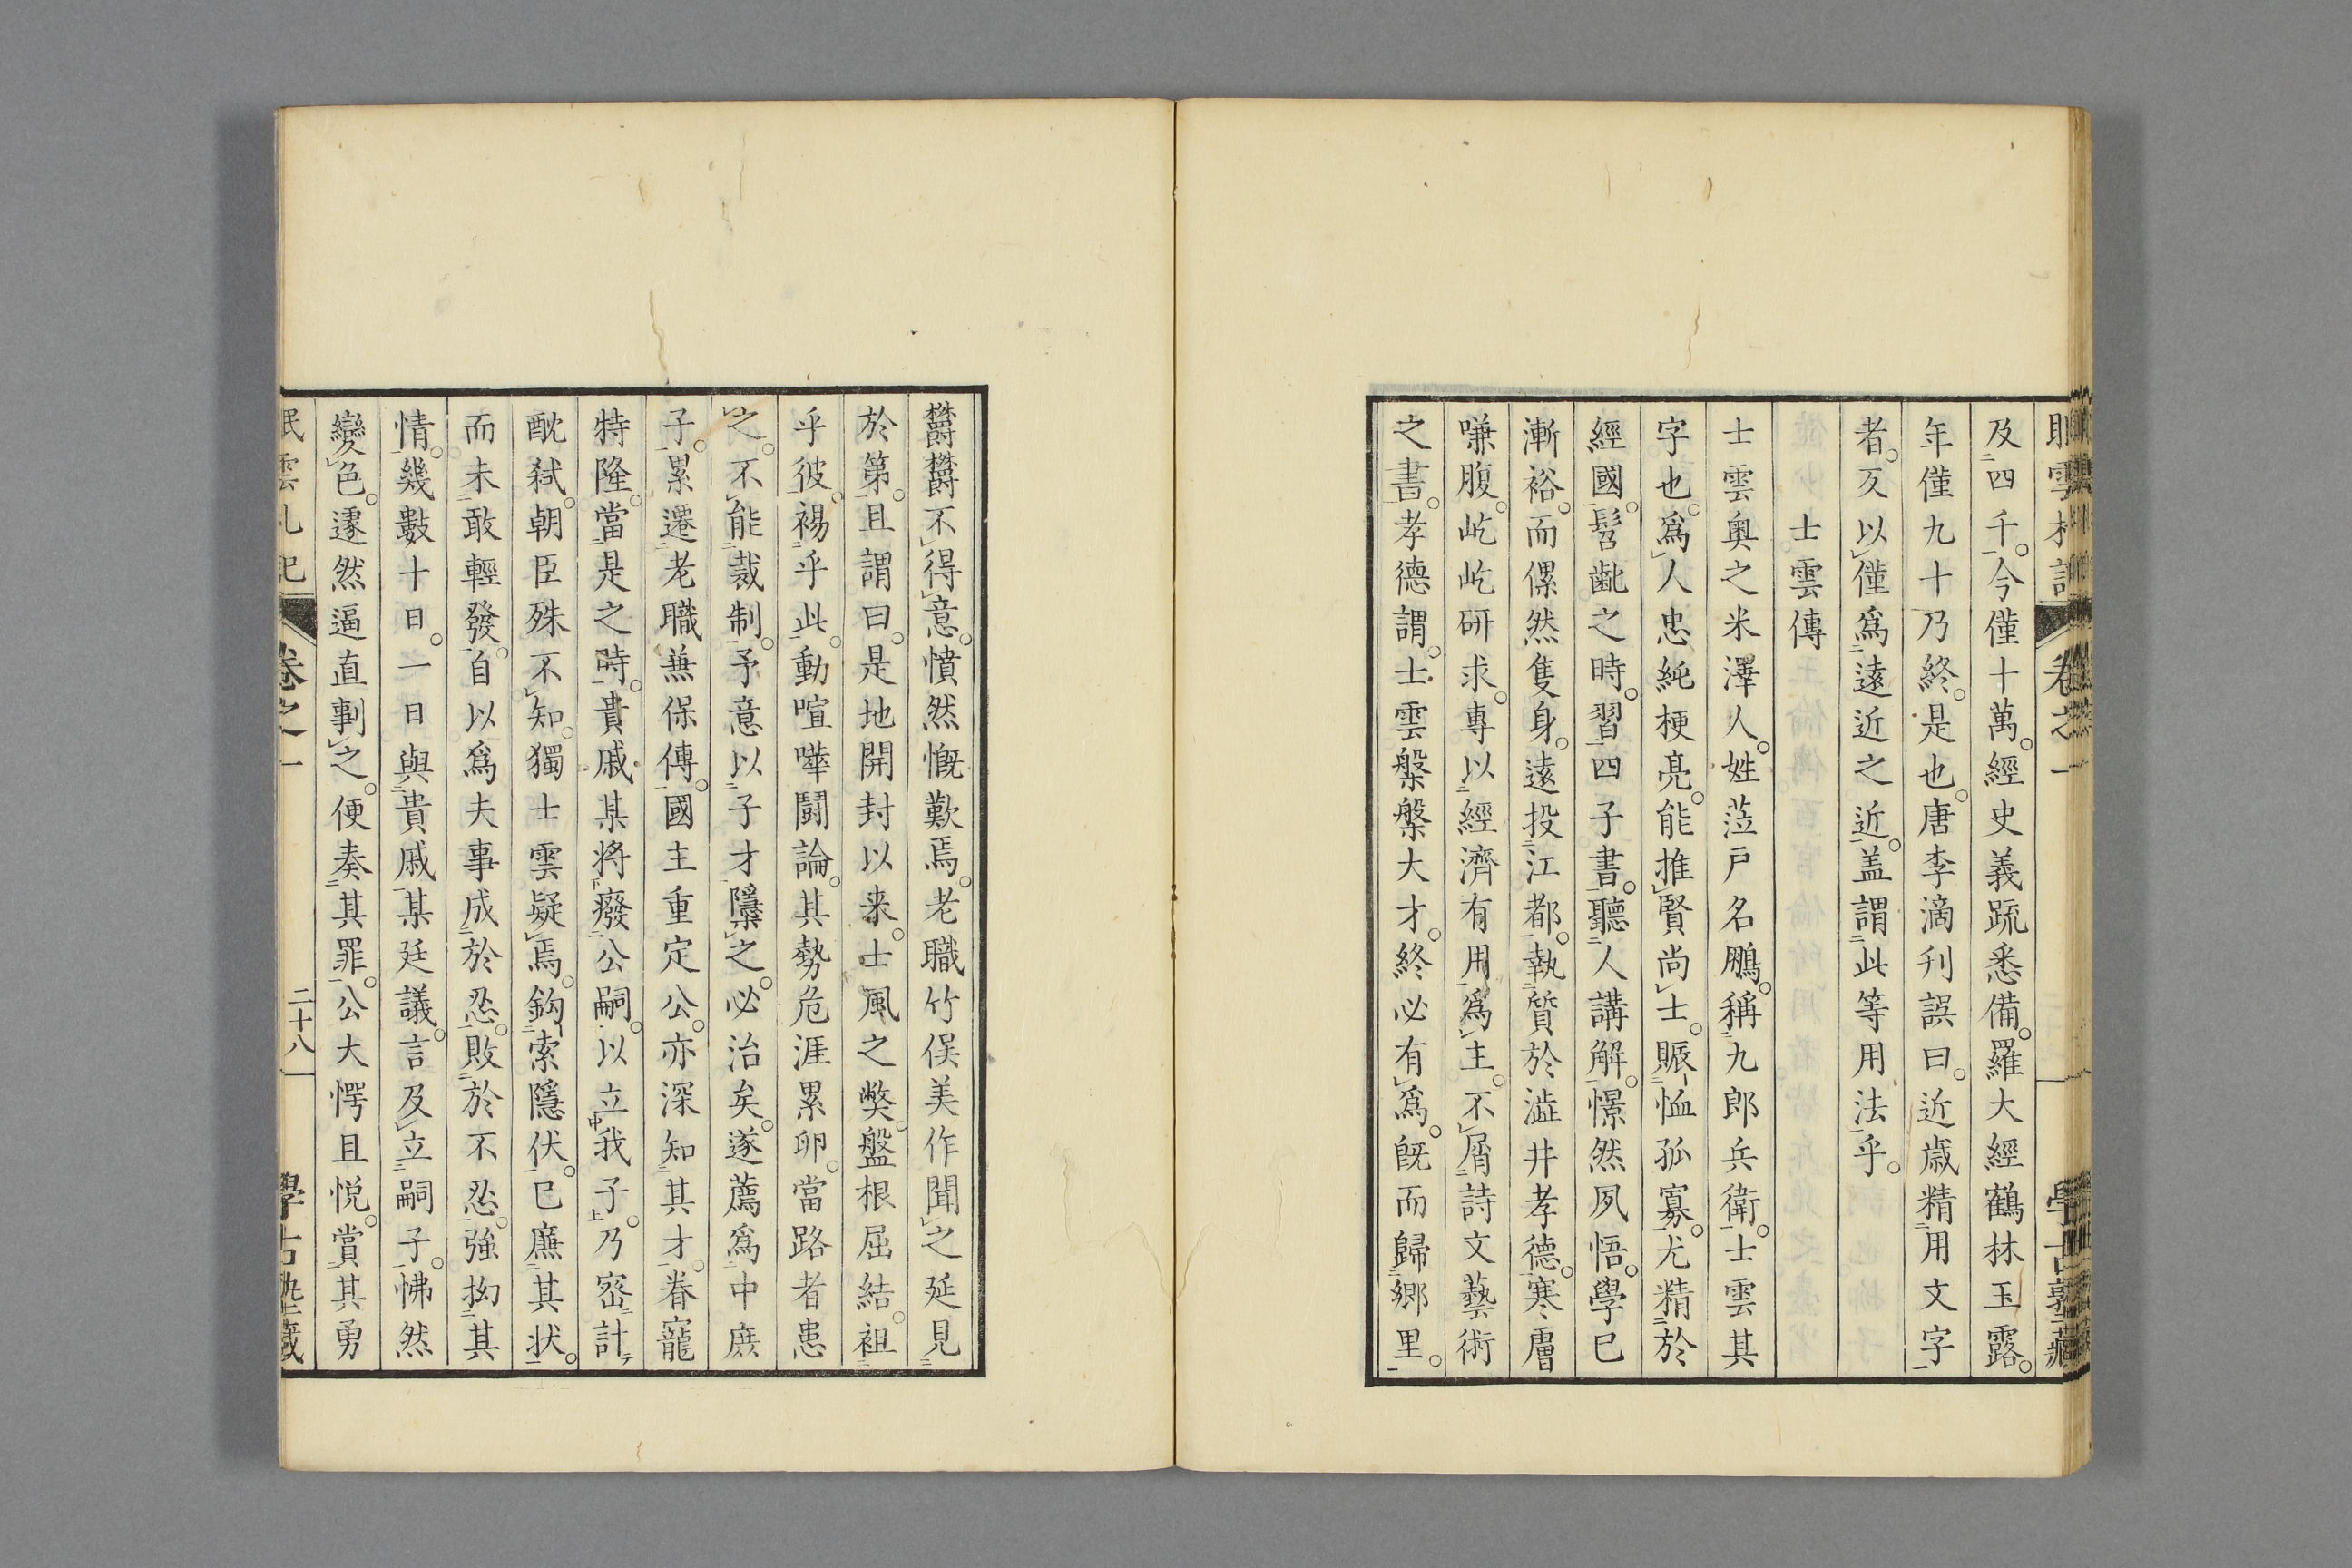 及四千。今僅十萬。經史義疏悉備。羅大經鶴林玉露。
年僅九十乃終。是也。唐李滴刋誤曰。近歲精用文字
者。叐以僅爲遠近之近。盖謂此等用法乎。
士雲傳
士雲奧之米澤人。姓蒞戸名鵩。稱九郎兵衛。士雲其
字也。爲人忠純梗亮。能推賢尚士。賑恤孤寡。尤精於
經國。髫齔之時。習四子書。聽人講解。憬然夙悟。學巳
漸裕。而傫然隻身。遠投江都。執質於澁井孝德。寒膺
嗛腹。屹屹研求。專以經濟有用爲主。不屑詩文藝術
之書。孝德謂。士雲槃槃大才。終必有爲。旣而歸郷里。
欝欝不得意。憤然慨歎焉。老職竹俣美作聞之延見
於第。且謂曰。是地開封以来。士風之獘。盤根屈結。袒
乎彼裼乎此。動喧嘩鬪論。其勢危涯累卵。當路者患
之。不能裁制。予意以子才隱槩之。必治矣。遂薦爲中庶
子。累遷老職兼保傅。國主重定公。亦深知其才。眷寵
特隆。當是之時。貴戚某將癈公嗣。以立我子。乃密計
酖弑。朝臣殊不知。獨士雲疑焉。鈎索隱伏。巳廉其状。
而未敢輕發。自以爲夫事成於忍。敗於不忍。強拗其
情。幾數十日。一日與貴戚某廷議。言及立嗣子。怫然
變色。遽然逼直剚之。便奏其罪。公大愕且悦。賞其勇
卷之一
二十八